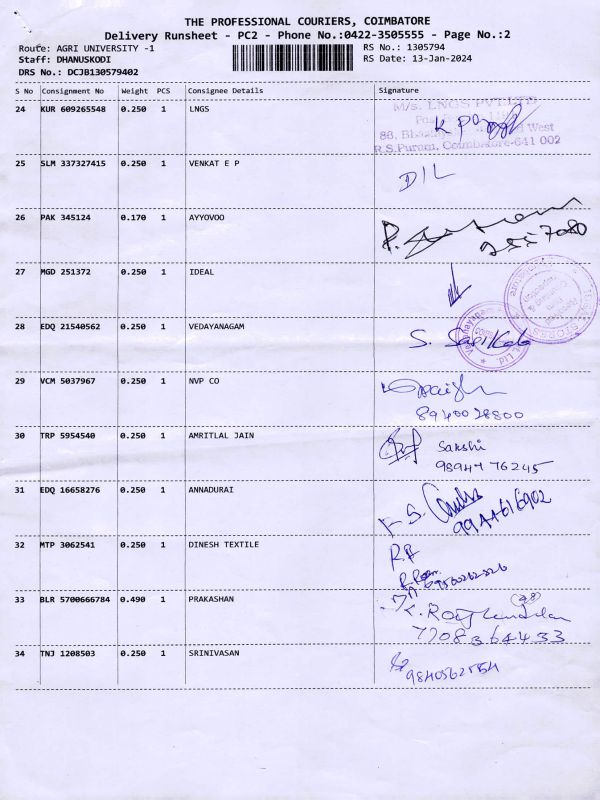 THE PROFESSIONAL COURIERS, COIMBATORE
Delivery Runsheet - PC2 - Phone No.:0422-3505555 - Page No.:2
Route: AGRI UNIVERSITY -1
RS No.: 1305794
Staff: DHANUSKODI
RS Date: 13-Jan-2024
DRS No.: DCJB130579402
S No Consignment No Weight PCS Consignee Details Signature
24 KUR 609265548 0.250 1 LNGS
M/s. LNGS PVT.LTD
86, West
R.S.Puram, Coimbatore-641 002
25 SLM 337327415 0.250 1 VENKAT E P
DIL
26 PAK 345124 0.170 1 AYYOVOO
27 MGD 251372 0.250 1 IDEAL
28 EDQ 21540562 0.250 1 VEDAYANAGAM
S. Sasikala
29 VCM 5037967 0.250 1 NVP CO
8940028800
30 TRP 5954540 0.250 1 AMRITLAL JAIN
Sakshi
98947 76245
31 EDQ 16658276 0.250 1 ANNADURAI
9944616902
32 MTP 3062541 0.250 1 DINESH TEXTILE
33 BLR 5700666784 0.490 1 PRAKASHAN
7708364433
34 TNJ 1208503 0.250 1 SRINIVASAN